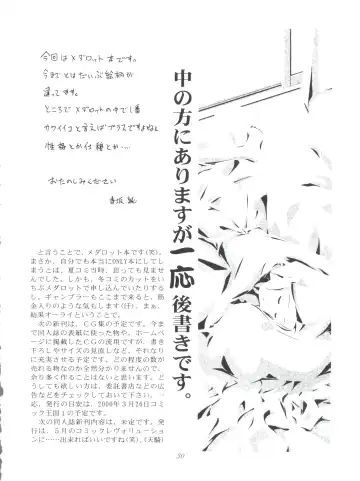 今回はメダロット本です。
今までとはだいぶ絵柄が
違ってます。
ところでメダロットの中で1番
カワイイコと言えばブラスですよねし
性格とか仕種とか‥‥
おたのしみください
中の方にありますが一応後書きです。
と言うことで、メダロット本です(笑)。
まさか、自分でも本当にONLY本にしてし
まうとは、夏コミ当時、思っても見ませ
んでした。しかも、冬コミのカットをい
ちぶメダロットで申し込んでいたりする
し。ギャンブラーもここまで来ると、筋
金入りのような気もします(汗)。まぁ、
結果オーライということで。
次の新刊は、CG集の予定です。今ま
で同人誌の表紙に使った物や、ホームペ
ージに掲載したCGの流用ですが、書き
下ろしやサイズの見直しなど、それなり
に充実させる予定です。どの程度の数が
売れる物なのか全然分かりませんので、
余り多く作ることはないと思います。ど
うしても欲しい方は、委託書店などの広
告などをチェックしておいて下さい。一
応、発行の目安は、2000年3月26日コミ
ック王国1の予定です。
次の同人誌新刊内容は、未定です。発
行は、5月のコミックレヴォリューショ
ンに……出来ればいいですね(笑)。(天騎)
50